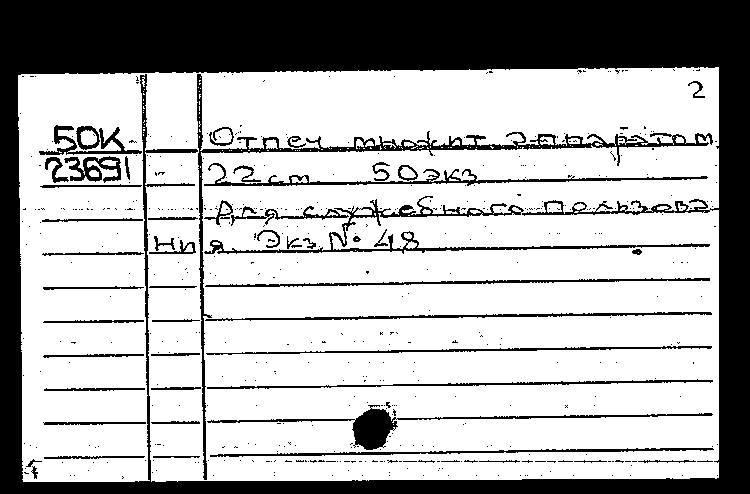 2
50К Отпеч множит аппаратом
23691 22 cm 50 экз
Для служебного пользова
ния. Экз № 48